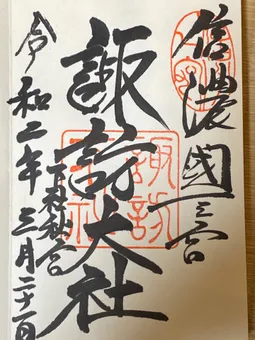 信濃國一之宮
諏訪大社
諏訪
下社秋宮
令和二年三月二十一日